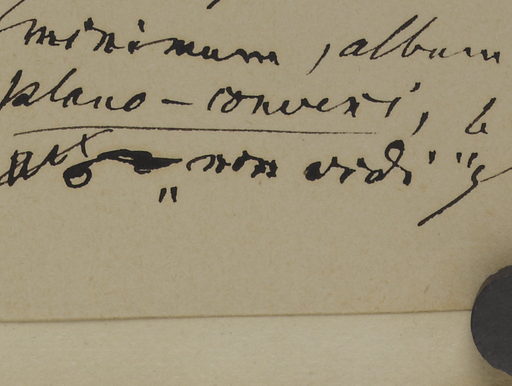 minimum, album
plano-convexi,
„non vidi"